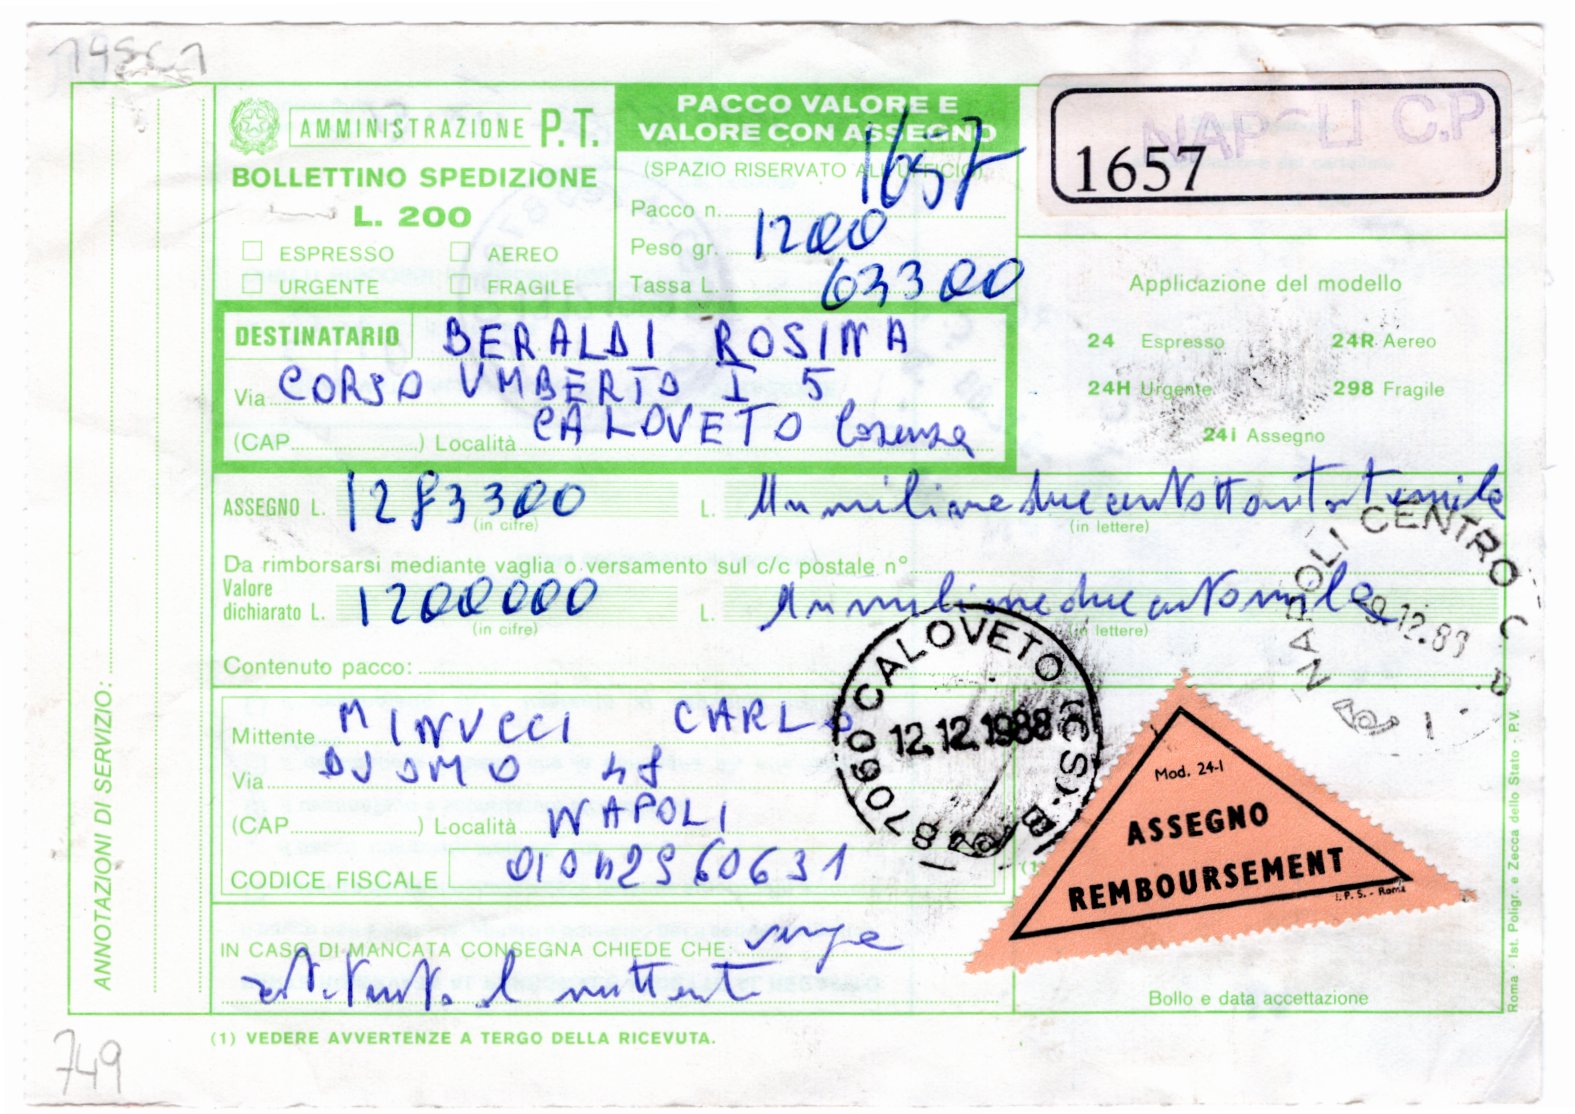 AMMINISTRAZIONE P.T.
BOLLETTINO SPEDIZIONE
L. 200
ESPRESSO AEREO
URGENTE FRAGILE
PACCO VALORE E
VALORE CON ASSEGNO
(SPAZIO RISERVATO ALL'UFFICIO)
Pacco n. 1657
Peso gr. 1200
Tassa L. 63300
NAPOLI C.P.
1657
Applicazione del modello
24 Espresso 24R Aereo
24H Urgente 298 Fragile
24I Assegno
DESTINATARIO BERALDI ROSINA
Via CORSO UMBERTO I 5
(CAP ) Località CALOVETO Cosenza
ASSEGNO L. 1283300 L. Unmilioneduecentottantatremila
(in cifre) (in lettere)
Da rimborsarsi mediante vaglia o versamento sul c/c postale n°
Valore
dichiarato L. 1200000 L. Unmilioneduecentomila
(in cifre) (in lettere)
Contenuto pacco:
NAPOLI CENTRO C
9.12.88
87060 CALOVETO (CS)-B
12.12.1988
Mittente MINUCCI CARLO
Via DUOMO 48
(CAP ) Località NAPOLI
CODICE FISCALE
IN CASO DI MANCATA CONSEGNA CHIEDE CHE: venga
restituito al mittente
Mod. 24-I
ASSEGNO
REMBOURSEMENT
I.P.S. - Roma
(1
Bollo e data accettazione
(1) VEDERE AVVERTENZE A TERGO DELLA RICEVUTA.
ANNOTAZIONI DI SERVIZIO:
Roma - Ist. Poligr. e Zecca dello Stato - P.V.
749